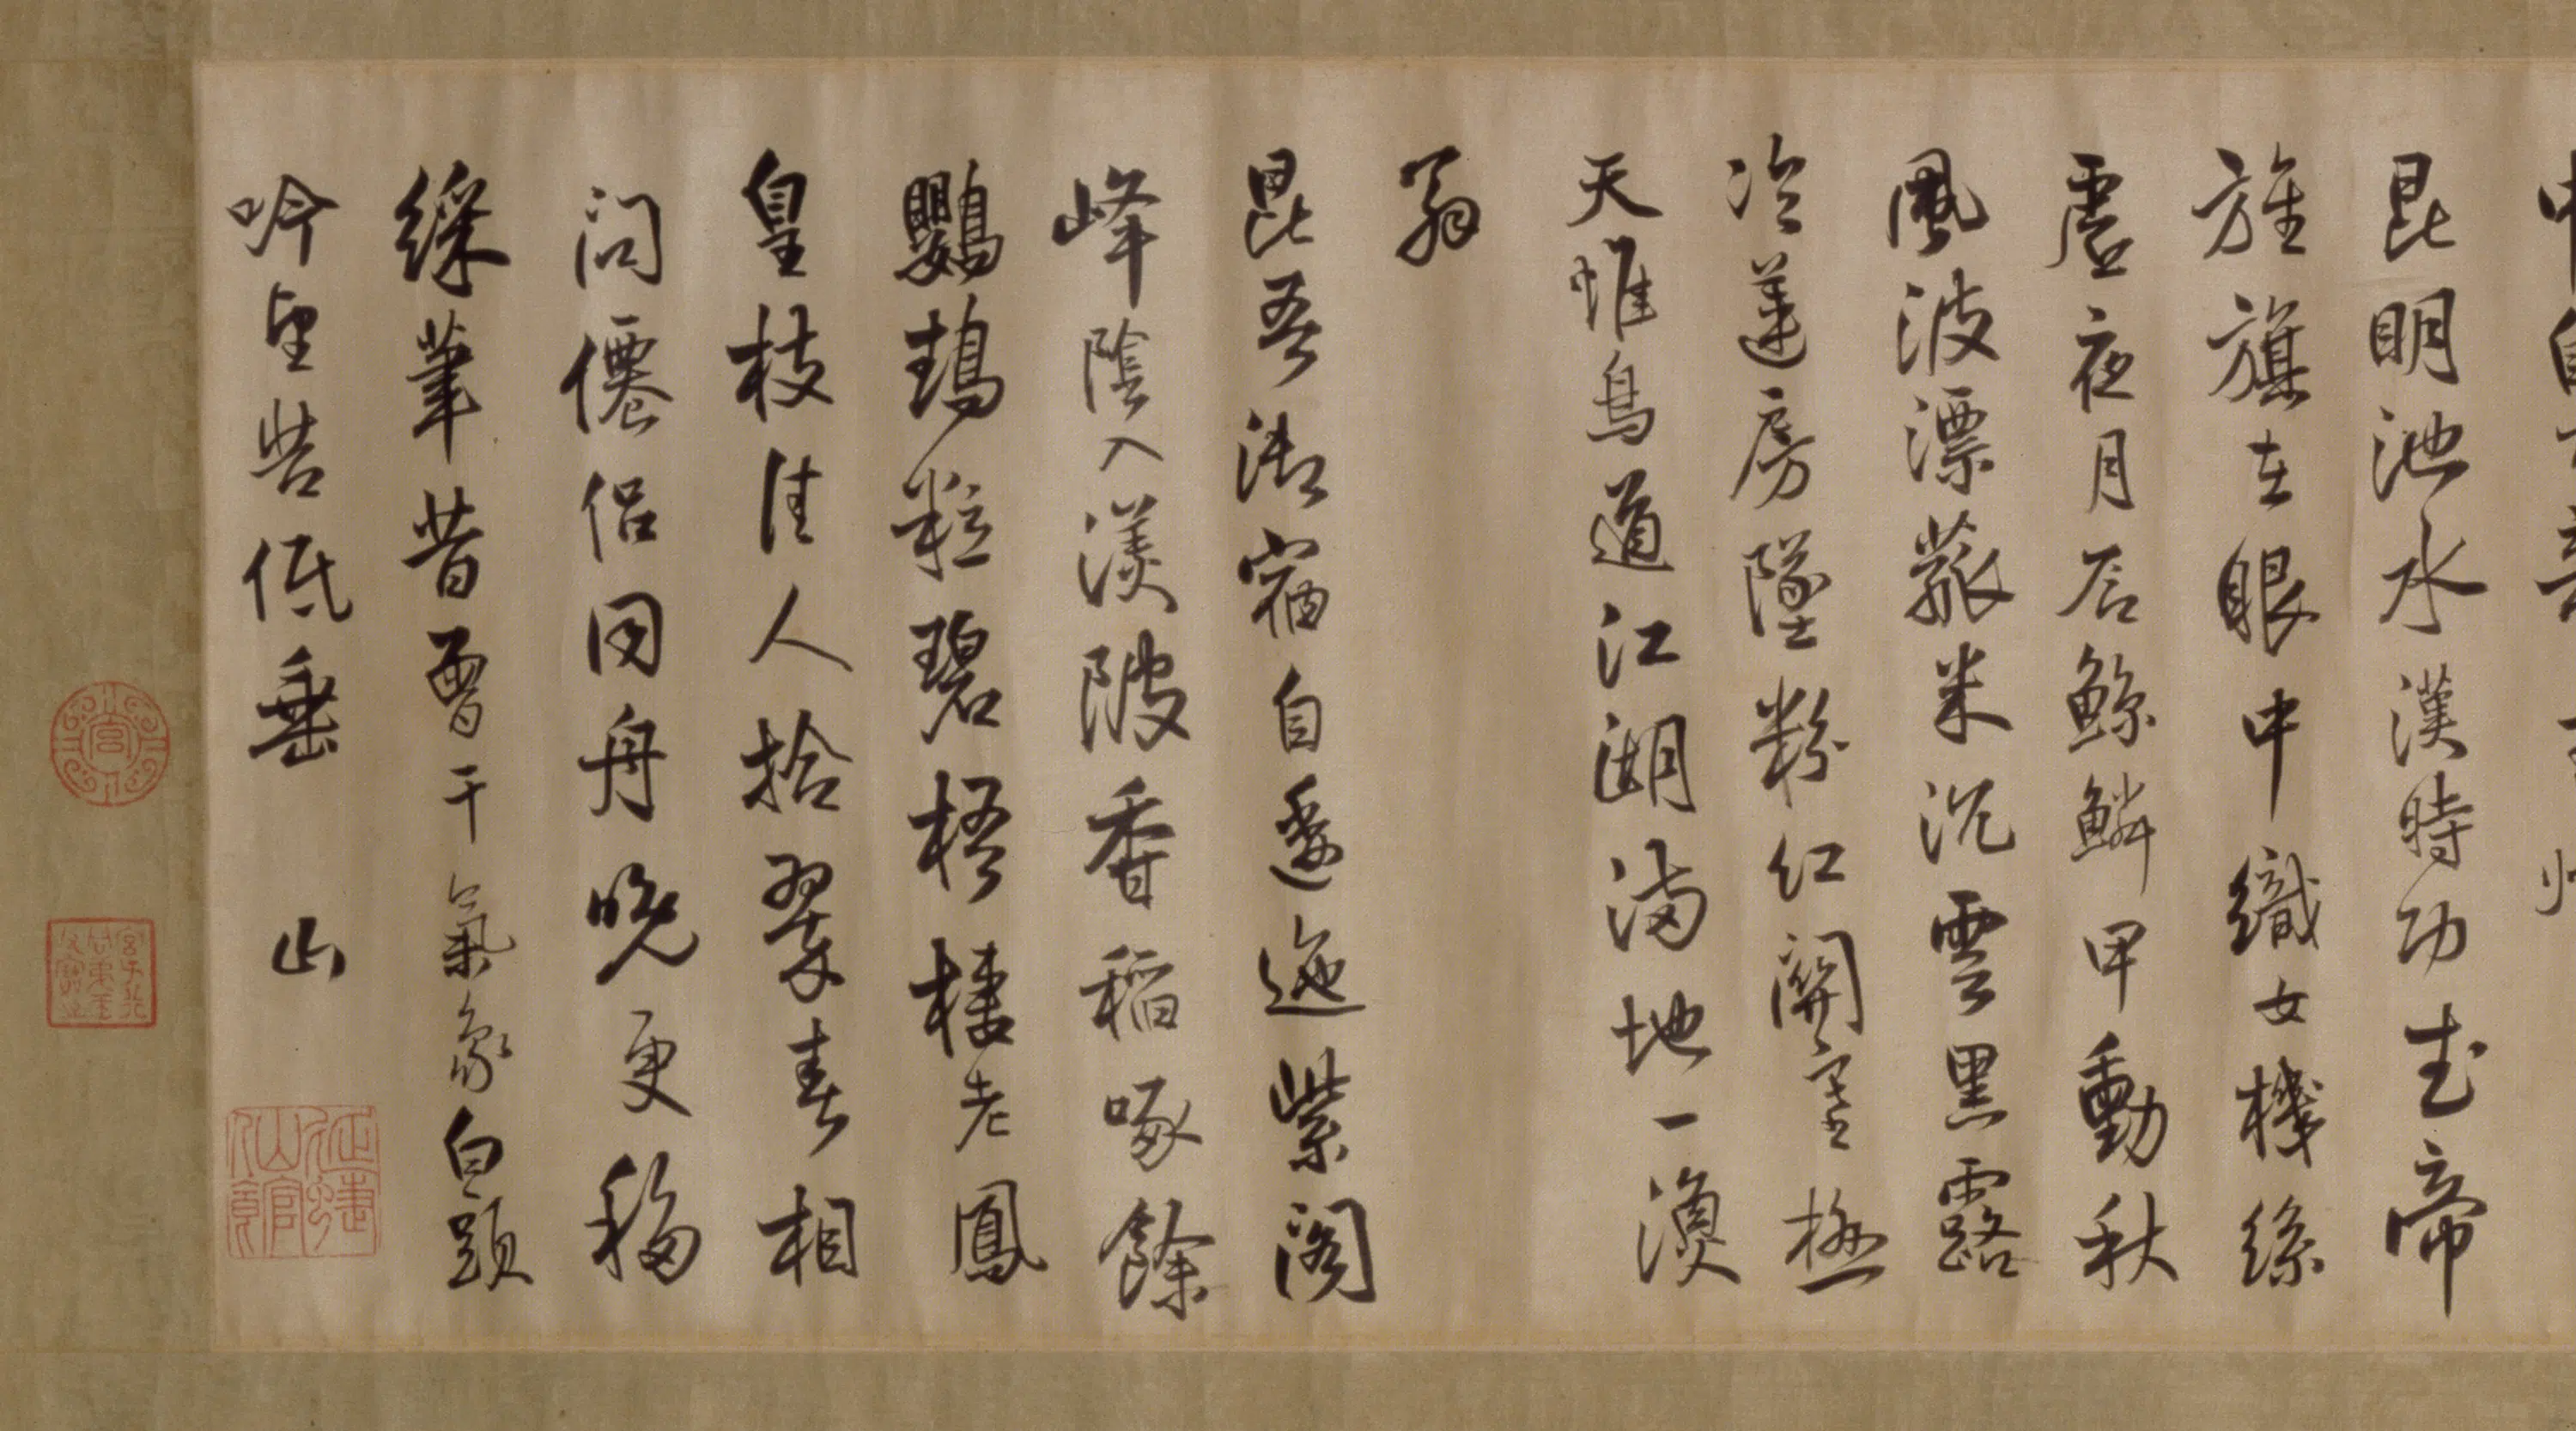 昆明池水漢時功武帝
旌旗在眼中織女機絲
虛夜月石鯨鱗甲動秋
風波漂菰米沉雲黑露
冷蓮房墜粉紅關塞極
天惟鳥道江湖滿地一漁
翁
昆吾御宿自逶迤紫閣
峰陰入渼陂香稻啄餘
鸚鵡粒碧梧棲老鳳
皇枝佳人拾翠春相
問僊侶同舟晚更移
綵筆昔曾干氣象白頭
吟望苦低垂 山